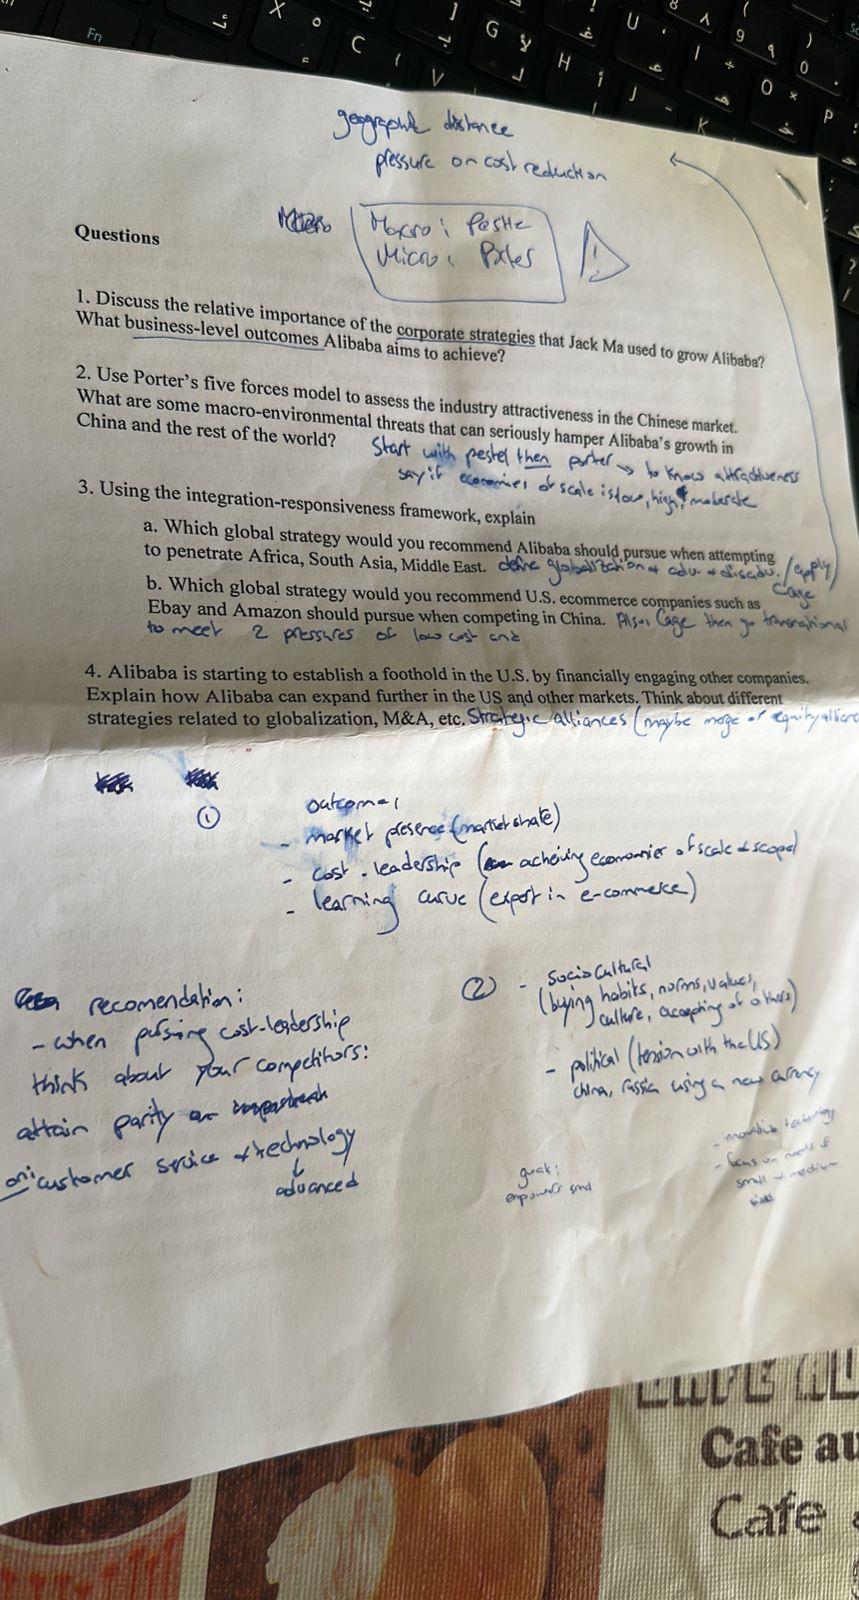 geographic distance
pressure on cost reduction
Macro: Pestle
Micro: Porter
Questions
1. Discuss the relative importance of the corporate strategies that Jack Ma used to grow Alibaba?
What business-level outcomes Alibaba aims to achieve?
2. Use Porter's five forces model to assess the industry attractiveness in the Chinese market.
What are some macro-environmental threats that can seriously hamper Alibaba's growth in
China and the rest of the world?
Start with pestel then porter → to know attractiveness
say if economies of scale is low, high, moderate
3. Using the integration-responsiveness framework, explain
a. Which global strategy would you recommend Alibaba should pursue when attempting
to penetrate Africa, South Asia, Middle East. define globalization + adv. + disadv. / apply
Cage
b. Which global strategy would you recommend U.S. ecommerce companies such as
Ebay and Amazon should pursue when competing in China. Also, Cage then go transnational
to meet 2 pressures of low cost and
4. Alibaba is starting to establish a foothold in the U.S. by financially engaging other companies.
Explain how Alibaba can expand further in the US and other markets. Think about different
strategies related to globalization, M&A, etc. Strategic alliances (maybe merge or equity
1
outcome:
- market presence (market share)
- cost-leadership (acheiving economies of scale & scope)
- learning curve (expert in e-commerce)
recomendation:
- when pursing cost-leadership
think about your competitors:
attain parity
on: customer service + technology
↓
advanced
2 - Socio Cultural
(buying habits, norms, values,
culture, accepting of others)
- political (tension with the US)
china, russia using a new currency
- technology
- focus on needs of
small + medium
goal:
empowers smd
Fn
X
C
V
G
H
U
J
I
K
O
P
9
0
Cafe au
Cafe